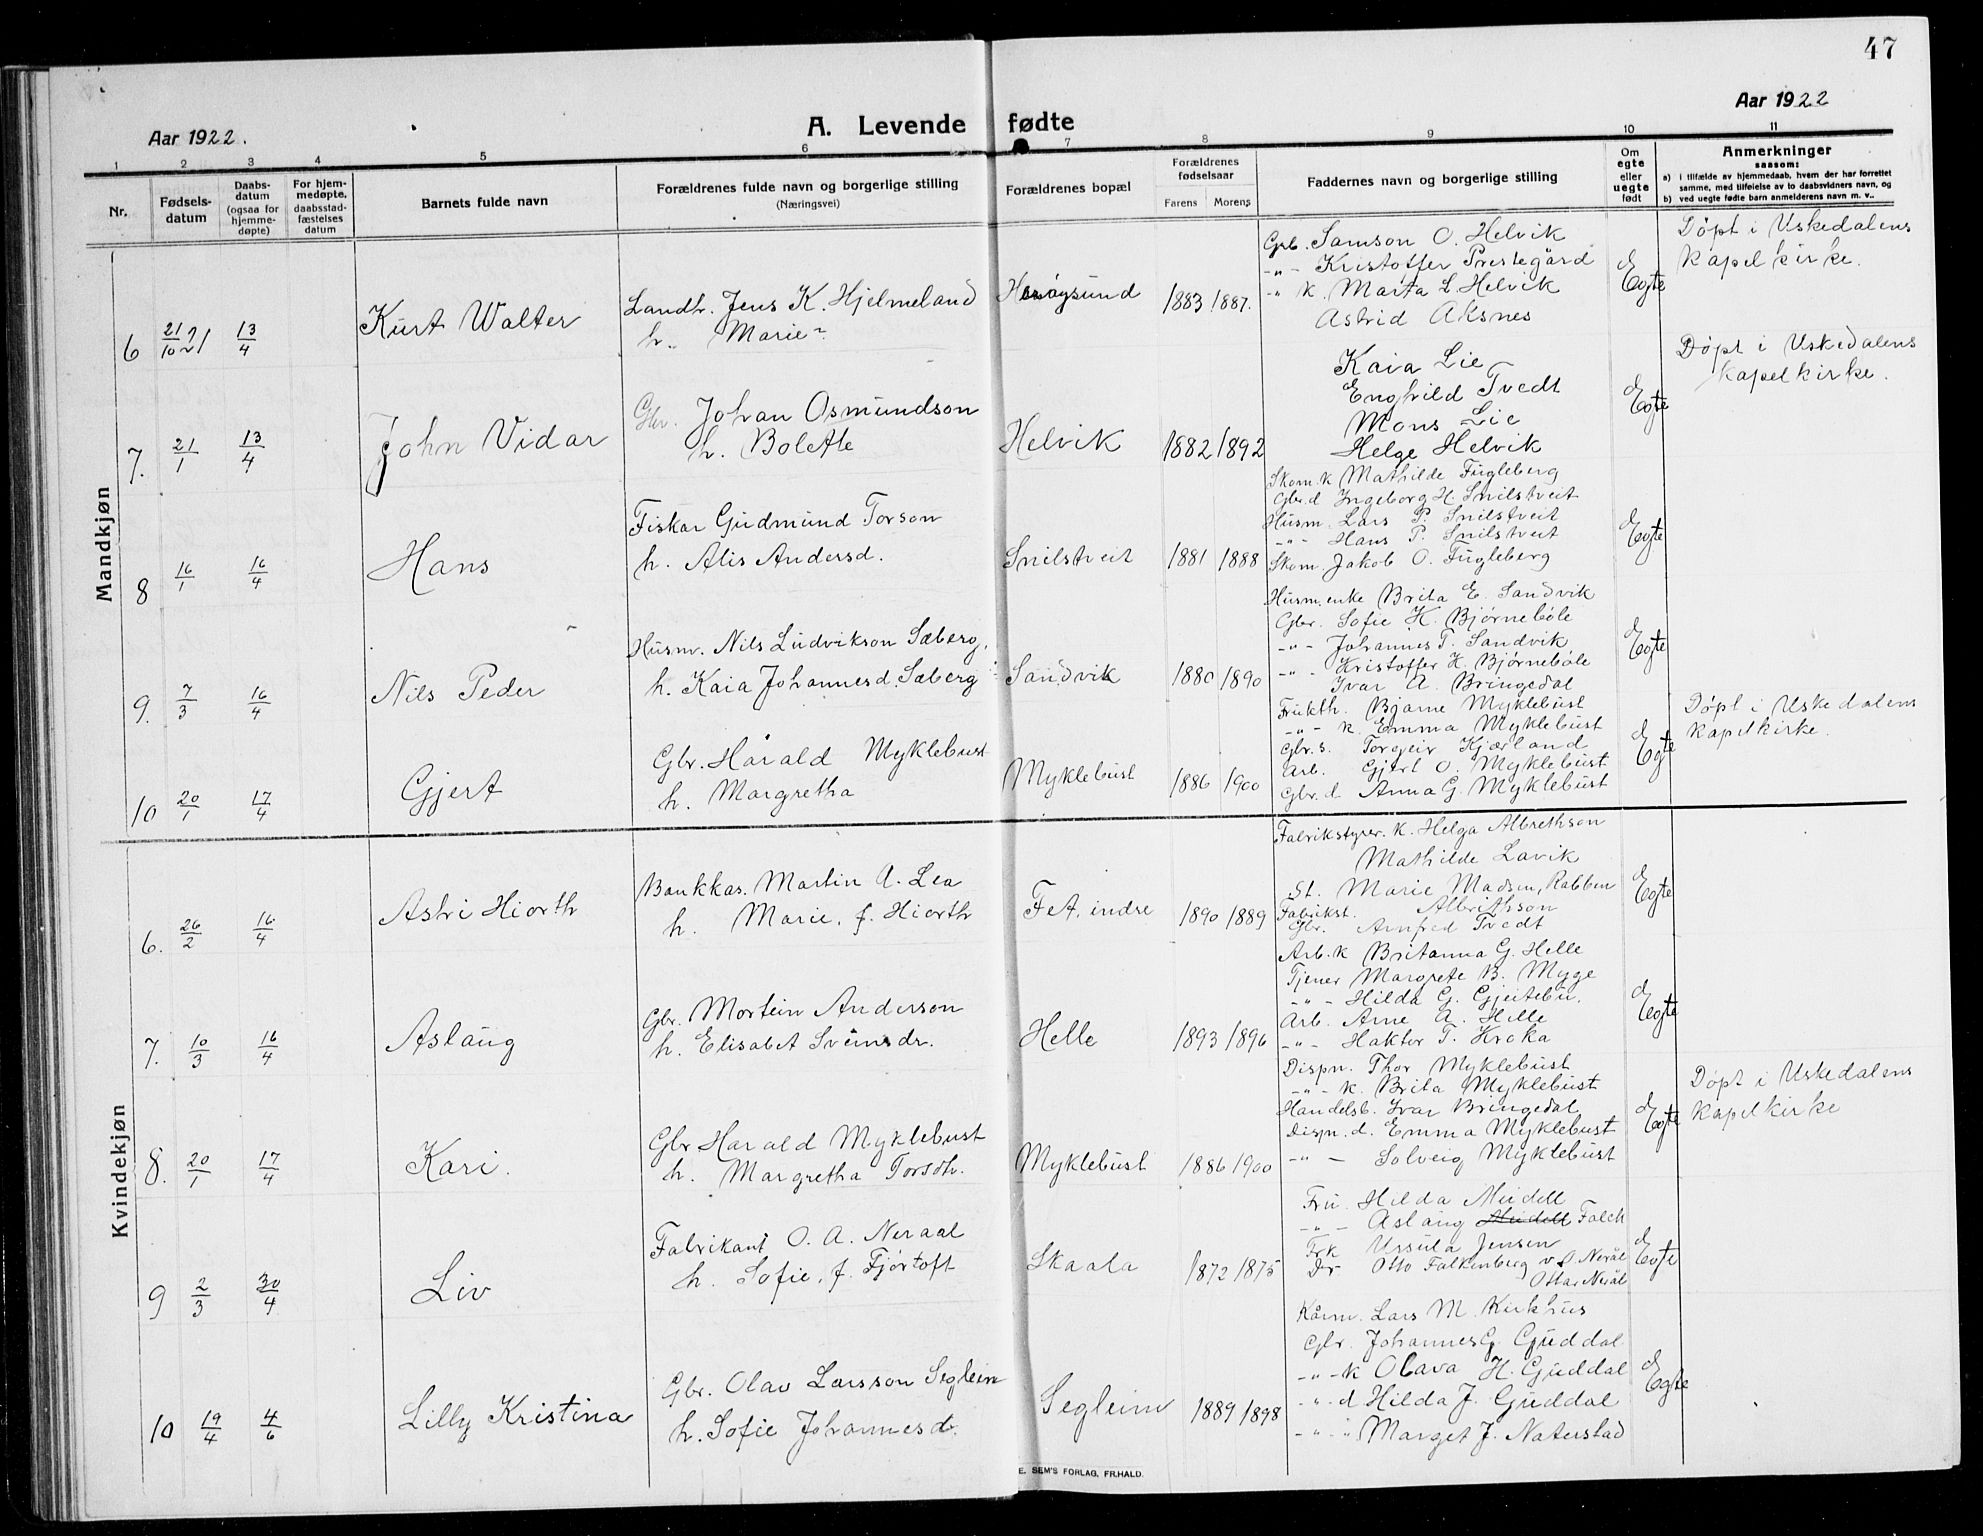 47
Aar 1922.
A. Levende fødte
Aar 1922
1 2 3 4 5 6 7 8 9 10 11
Nr.
Fødsels-
datum
Daabs-
datum
(ogsaa for
hjemme-
døpte)
For hjem-
medøpte,
daabsstad-
fæstelses
datum
Barnets fulde navn
Forældrenes fulde navn og borgerlige stilling
(Næringsvei)
Forældrenes bopæl
Forældrenes
fødselsaar
Farens Morens
Faddernes navn og borgerlige stilling
Om
egte
eller
uegte
født
Anmerkninger
saasom:
a) i tilfælde av hjemmedaab, hvem der har forrettet
samme, med tilføielse av to daabsvidners navn, og
b) ved uegte fødte barn anmelderens navn m. v..
Mandkjøn
6 21/10 21 13/4 Kurt Walter
Landh. Jens K. Hjelmeland
h. Marie
Herøysund 1883 1887.
Gbr. Samson O. Helvik
-"- Kristoffer Prestegård
-"- K. Marta L. Helvik
Astrid Aksnes
Egte
Døpt i Uskedalens
kapelkirke.
7. 21/1 13/4 John Vidar
Gbr. Johan Osmundson
h. Bolette
Helvik 1882 1892
Kaia Lie
Enghild Tvedt
Mons Lie
Helge Helvik
Egte
Døpt i Uskedalens
kapelkirke.
8 16/1 16/4 Hans
Fiskar Gudmund Torson
h. Alis Andersd.
Snilstveit 1881 1888
Skom. k Mathilde Fugleberg
Gbr. d Ingeborg H. Snilstveit
Husm. Lars P. Snilstveit
-"- Hans P. Snilstveit
Skom. Jakob O. Fugleberg
Egte
9. 7/3 16/4 Nils Peder
Husm. Nils Ludvikson Sæberg,
h. Kaia Johannesd. Sæberg
Sandvik 1880 1890
Husm. enke Brita E. Sandvik
Gbr. Sofie K. Bjørnebøle
-"- Johannes T. Sandvik
-"- Kristoffer K. Bjørnebøle
Ivar A. Bringedal
Egte
10 20/1 17/4 Gjert
Gbr. Harald Myklebust
h. Margretha
Myklebust 1886 1900
Frukth. Bjarne Myklebust
-"- k. Emma Myklebust
Gbr. s. Torgeir Kjærland
Arb. Gjert O. Myklebust
Gbr. d Anna G. Myklebust
Egte
Døpt i Uskedalens
kapelkirke.
Kvindekjøn
6. 26/2 16/4 Astri Hiorth
Bankkas. Martin A. Lea
h. Marie, f. Hiorth
Fet, indre 1890 1889
Fabrikstyrer. k. Helga Albrethson
Mathilde Lavik
St. Marie Madsen, Rabben
Fabrikst. Albrithson
Gbr. Arnfred Tvedt
Egte
7. 10/3 16/4 Aslaug
Gbr. Mortein Anderson
h. Elisabet Sveinsdr.
Helle 1893 1896
Arb. k Britanna G. Helle
Tjener Margrete B. Myge
-"- Hilda G. Gjeitebu.
Arb. Arne A. Helle
-"- Haktor T. Kroka
Egte
8. 20/1 17/4 Kari.
Gbr Harald Myklebust
h. Margretha Torsdtr.
Myklebust 1886 1900
Dispn. Thor Myklebust
-"- k. Brita Myklebust
Handelsb. Ivar Bringedal
Dispn. d. Emma Myklebust
-"- Solveig Myklebust
Egte
Døpt i Uskedalens
kapelkirke
9 2/3 30/4 Liv
Fabrikant O. A. Neraal
h. Sofie, f. Fjørtoft
Skaala 1872 1875
Fru. Hilda Meidell
-"- Aslaug Meidell Falch
Frk Ursula Jensen
Dr. Otto Falkenberg v. O. Nerål
Ottar Nerål
Egte
10 19/4 4/6 Lilly Kristina
Gbr. Olav Larsson Seglem
h. Sofie Johannesd.
Segleim 1889 1898
Kårm. Lars M. Kirkhus
Gbr. Johannes G. Guddal
-"- k Olava H. Guddal
-"- d Hilda J. Guddal
-"- " Marget J. Naterstad
Egte
E. SEM'S FORLAG, FR.HALD.